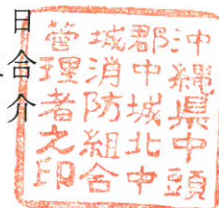 日合介
沖縄県中頭
郡中城北中
城消防組合
管理者之印